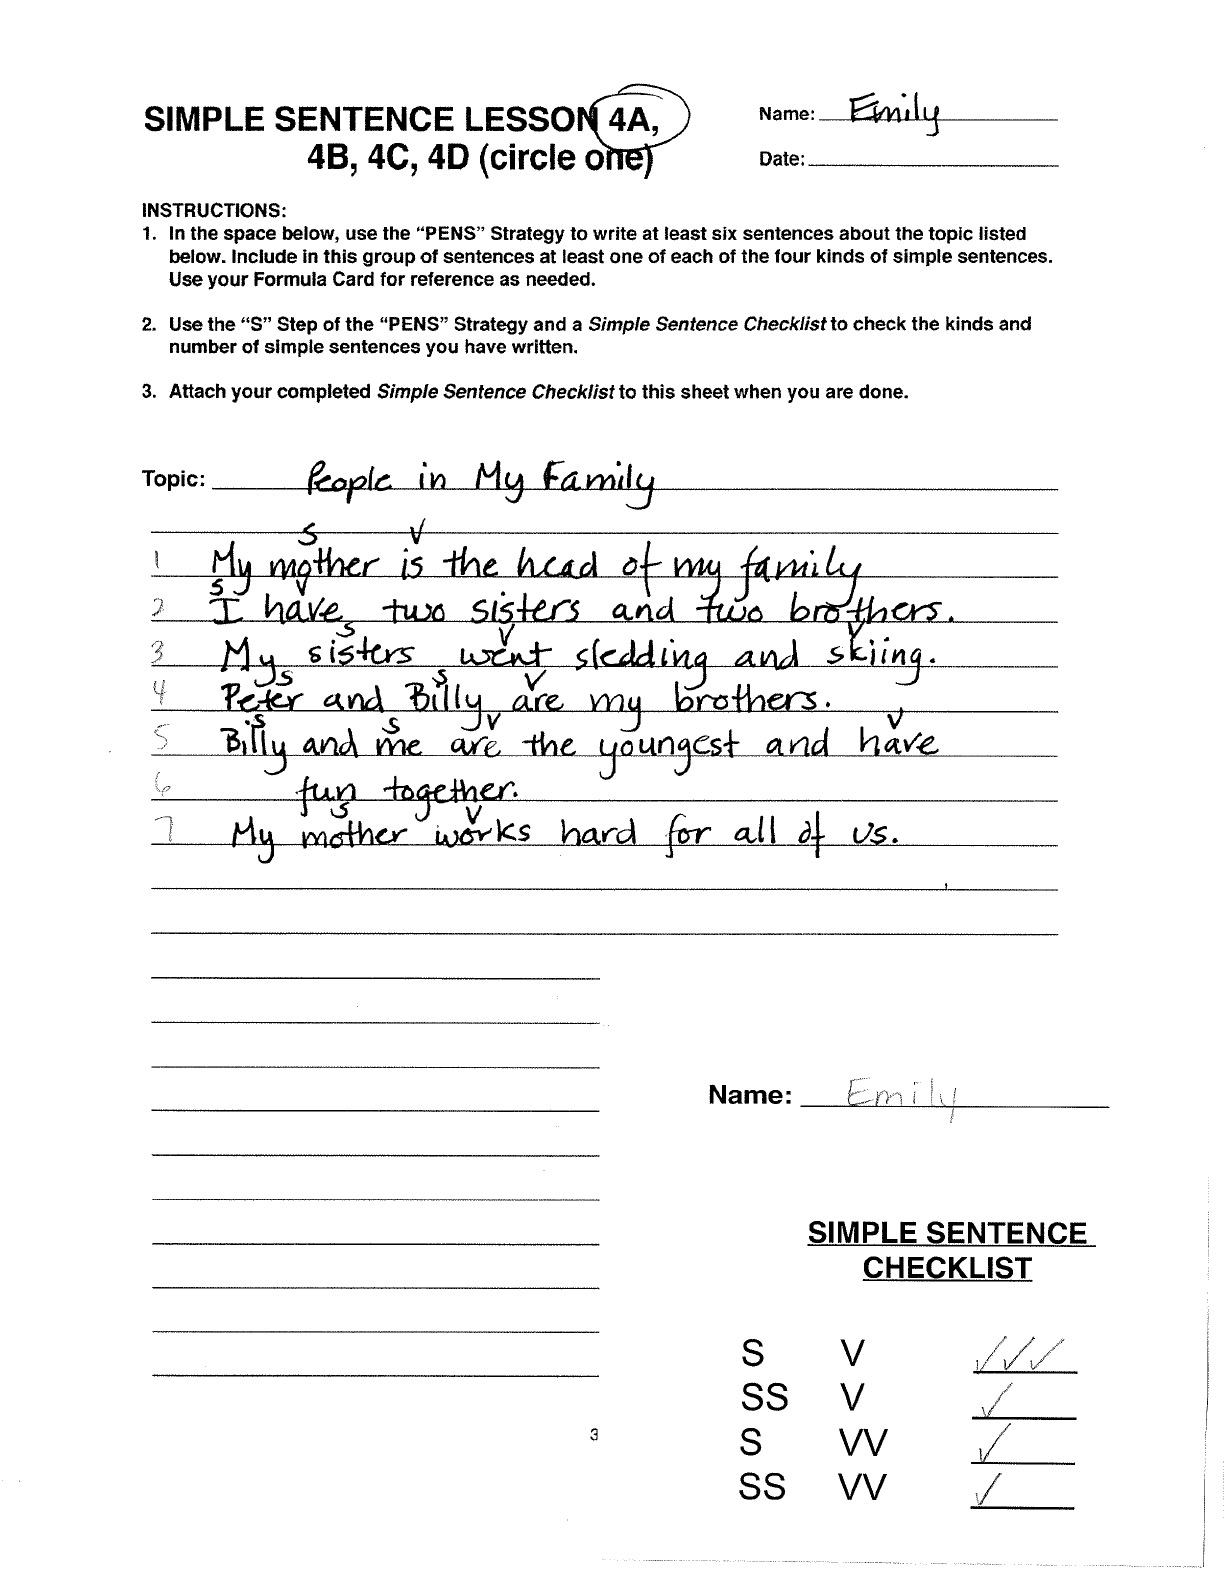 SIMPLE SENTENCE LESSON 4A,
4B, 4C, 4D (circle one)
Name: Emily
Date:
INSTRUCTIONS:
1. In the space below, use the “PENS” Strategy to write at least six sentences about the topic listed
below. Include in this group of sentences at least one of each of the four kinds of simple sentences.
Use your Formula Card for reference as needed.
2. Use the “S” Step of the “PENS” Strategy and a Simple Sentence Checklist to check the kinds and
number of simple sentences you have written.
3. Attach your completed Simple Sentence Checklist to this sheet when you are done.
Topic: People in My Family
S V
1 My mother is the head of my family
S V
2 I have two sisters and two brothers.
S V V
3 My sisters went sledding and skiing.
S S V
4 Peter and Billy are my brothers.
S S V V
5 Billy and me are the youngest and have
6 fun together.
S V
7 My mother works hard for all of us.
3
Name: Emily
SIMPLE SENTENCE
CHECKLIST
S V ✓✓✓
SS V ✓
S VV ✓
SS VV ✓